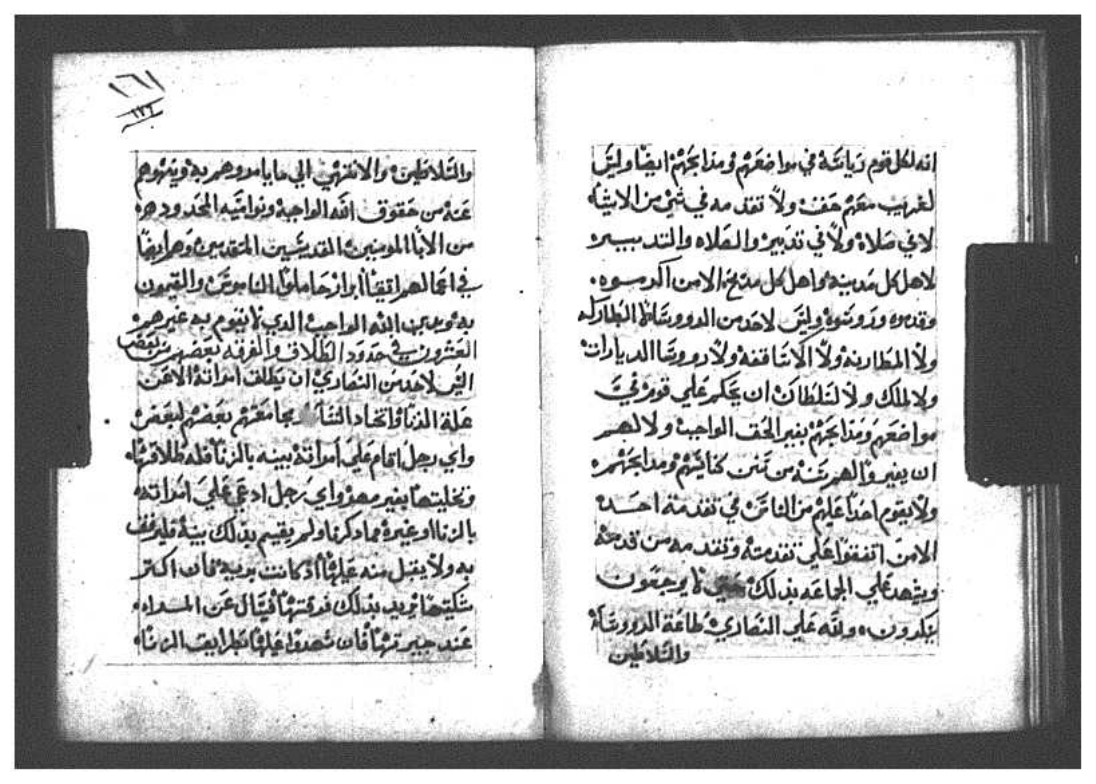 انه لكل قوم رياسة في مواضعهم ومذابحهم ايضا وليس
لغريب معهم حق ولا تقدمه في شي من الاشياء
لا في صلاه ولا في تدبير والصلاه والتدبير
لاهل كل مدينه واهل كل مذبح الا من اكرموه
وقدموه وروسوه وليس لاحد من الروسا البطاركه
ولا المطارنه ولا الاساقفه ولا روسا الديارات
ولا لملك ولا لسلطان ان يحكم علي قوم في
مواضعهم ومذابحهم بغير الحق الواجب ولا لهم
ان يغيروا لهم سنه من سنن كنايسهم ومذابحهم
ولا يقوم احدا عليهم من الناس في تقدمة احد
الا من اتفقوا علي تقدمته وتقدمه من قدمته
ويشهد علي الجماعه بذلك حتي لا يرجعون
ينكرون وانه علي النصاري طاعة الروسا
والسلاطين
١٦١
١٣٦
والسلاطين والانتهي الي ما يامروهم به وينهوهم
عنه من حقوق الله الواجبه ونواميسه المحدوده
من الابا المومنين القديسين المتقدمين وهم ايضا
في اعمالهم اتقيا ابرار حاملوا الناموس والقيمون
به وبدين الله الواجب الدي لا يقوم به غيرهم
العشرون في حدود الطلاق والفرقه بعضهم من بعض
ليس لاحد من النصاري ان يطلق امراته الا عن
علة الزنا واتحاد النسا مجامعتهم بعضهم لبعض
واي رجل اقام علي امراته بينه بالزنا فله طلاقها
وتخليتها بغير مهر واي رجل ادعي علي امراته
بالزنا او غيره مما دكرنا ولم يقيم بدلك بينة فليرفض
به ولا يقبل منه عليها اد كانت بريه فان اكتر
شكيتها يريد بدلك فرقتها فيسال عن المراه
عند جيرتها فان شهدوا عليها بطرايق الزنا